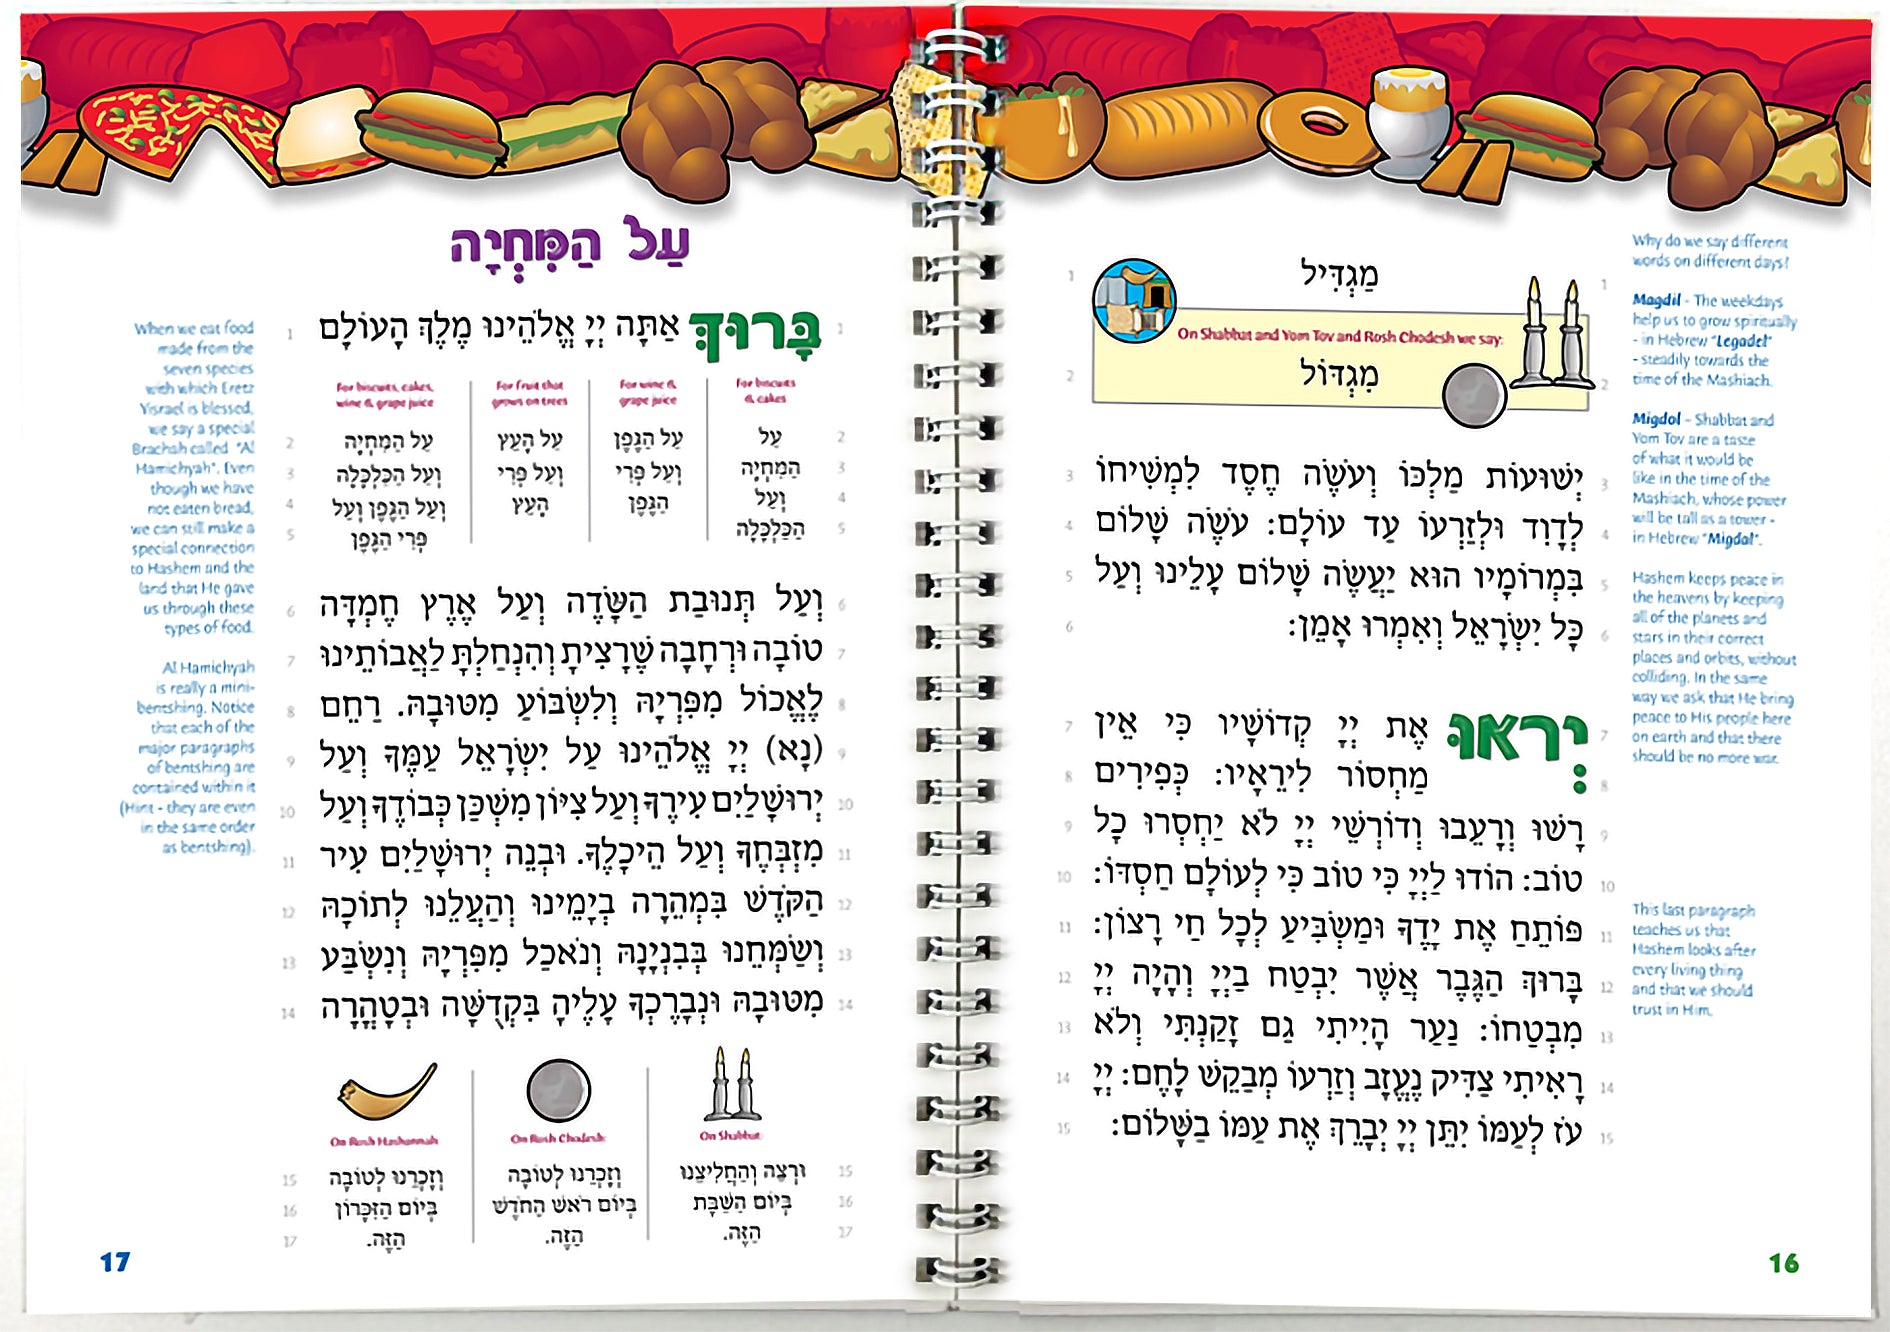 מַגְדִּיל
On Shabbat and Yom Tov and Rosh Chodesh we say:
מִגְדּוֹל
1
1
2
2
יְשׁוּעוֹת מַלְכּוֹ וְעֹשֶׂה חֶסֶד לִמְשִׁיחוֹ
3
3
לְדָוִד וּלְזַרְעוֹ עַד עוֹלָם: עֹשֶׂה שָׁלוֹם
4
4
בִּמְרוֹמָיו הוּא יַעֲשֶׂה שָׁלוֹם עָלֵינוּ וְעַל
5
5
כָּל יִשְׂרָאֵל וְאִמְרוּ אָמֵן:
6
6
יְראוּ אֶת יְיָ קְדוֹשָׁיו כִּי אֵין
7
7
מַחְסוֹר לִירֵאָיו: כְּפִירִים
8
8
רָשׁוּ וְרָעֵבוּ וְדוֹרְשֵׁי יְיָ לֹא יַחְסְרוּ כָל
9
9
טוֹב: הוֹדוּ לַיְיָ כִּי טוֹב כִּי לְעוֹלָם חַסְדּוֹ:
10
10
פּוֹתֵחַ אֶת יָדֶךָ וּמַשְׂבִּיעַ לְכָל חַי רָצוֹן:
11
11
בָּרוּךְ הַגֶּבֶר אֲשֶׁר יִבְטַח בַּיְיָ וְהָיָה יְיָ
12
12
מִבְטַחוֹ: נַעַר הָיִיתִי גַם זָקַנְתִּי וְלֹא
13
13
רָאִיתִי צַדִּיק נֶעֱזָב וְזַרְעוֹ מְבַקֵּשׁ לָחֶם: יְיָ
14
14
עֹז לְעַמּוֹ יִתֵּן יְיָ יְבָרֵךְ אֶת עַמּוֹ בַשָּׁלוֹם:
15
15
Why do we say different
words on different days?
Magdil - The weekdays
help us to grow spiritually
- in Hebrew "Legadel"
- steadily towards the
time of the Mashiach.
Migdol - Shabbat and
Yom Tov are a taste
of what it would be
like in the time of the
Mashiach, whose power
will be tall as a tower -
in Hebrew "Migdal".
Hashem keeps peace in
the heavens by keeping
all of the planets and
stars in their correct
places and orbits, without
colliding. In the same
way we ask that He bring
peace to His people here
on earth and that there
should be no more war.
This last paragraph
teaches us that
Hashem looks after
every living thing
and that we should
trust in Him.
16
עַל הַמִּחְיָה
בָּרוּךְ אַתָּה יְיָ אֱלֹהֵינוּ מֶלֶךְ הָעוֹלָם
1
1
For biscuits
& cakes
עַל
הַמִּחְיָה
וְעַל
הַכַּלְכָּלָה
For wine &
grape juice
עַל הַגֶּפֶן
וְעַל פְּרִי
הַגֶּפֶן
For fruit that
grows on trees
עַל הָעֵץ
וְעַל פְּרִי
הָעֵץ
For biscuits, cakes,
wine & grape juice
עַל הַמִּחְיָה
וְעַל הַכַּלְכָּלָה
וְעַל הַגֶּפֶן וְעַל
פְּרִי הַגֶּפֶן
2
3
4
5
2
3
4
5
וְעַל תְּנוּבַת הַשָּׂדֶה וְעַל אֶרֶץ חֶמְדָּה
6
6
טוֹבָה וּרְחָבָה שֶׁרָצִיתָ וְהִנְחַלְתָּ לַאֲבוֹתֵינוּ
7
7
לֶאֱכוֹל מִפִּרְיָהּ וְלִשְׂבּוֹעַ מִטּוּבָהּ. רַחֵם
8
8
(נָא) יְיָ אֱלֹהֵינוּ עַל יִשְׂרָאֵל עַמֶּךָ וְעַל
9
9
יְרוּשָׁלַיִם עִירֶךָ וְעַל צִיּוֹן מִשְׁכַּן כְּבוֹדֶךָ וְעַל
10
10
מִזְבְּחֶךָ וְעַל הֵיכָלֶךָ. וּבְנֵה יְרוּשָׁלַיִם עִיר
11
11
הַקֹּדֶשׁ בִּמְהֵרָה בְיָמֵינוּ וְהַעֲלֵנוּ לְתוֹכָהּ
12
12
וְשַׂמְּחֵנוּ בְּבִנְיָנָהּ וְנֹאכַל מִפִּרְיָהּ וְנִשְׂבַּע
13
13
מִטּוּבָהּ וּנְבָרֶכְךָ עָלֶיהָ בִּקְדֻשָּׁה וּבְטָהֳרָה
14
14
On Shabbat
וּרְצֵה וְהַחֲלִיצֵנוּ
בְּיוֹם הַשַּׁבָּת
הַזֶּה.
On Rosh Chodesh
וְזָכְרֵנוּ לְטוֹבָה
בְּיוֹם רֹאשׁ הַחֹדֶשׁ
הַזֶּה.
On Rosh Hashannah
וְזָכְרֵנוּ לְטוֹבָה
בְּיוֹם הַזִּכָּרוֹן
הַזֶּה.
15
16
17
15
16
17
When we eat food
made from the
seven species
with which Eretz
Yisrael is blessed,
we say a special
Brachah called "Al
Hamichyah". Even
though we have
not eaten bread,
we can still make a
special connection
to Hashem and the
land that He gave
us through these
types of food.
Al Hamichyah
is really a mini-
bentshing. Notice
that each of the
major paragraphs
of bentshing are
contained within it
(Hint - they are even
in the same order
as bentshing).
17